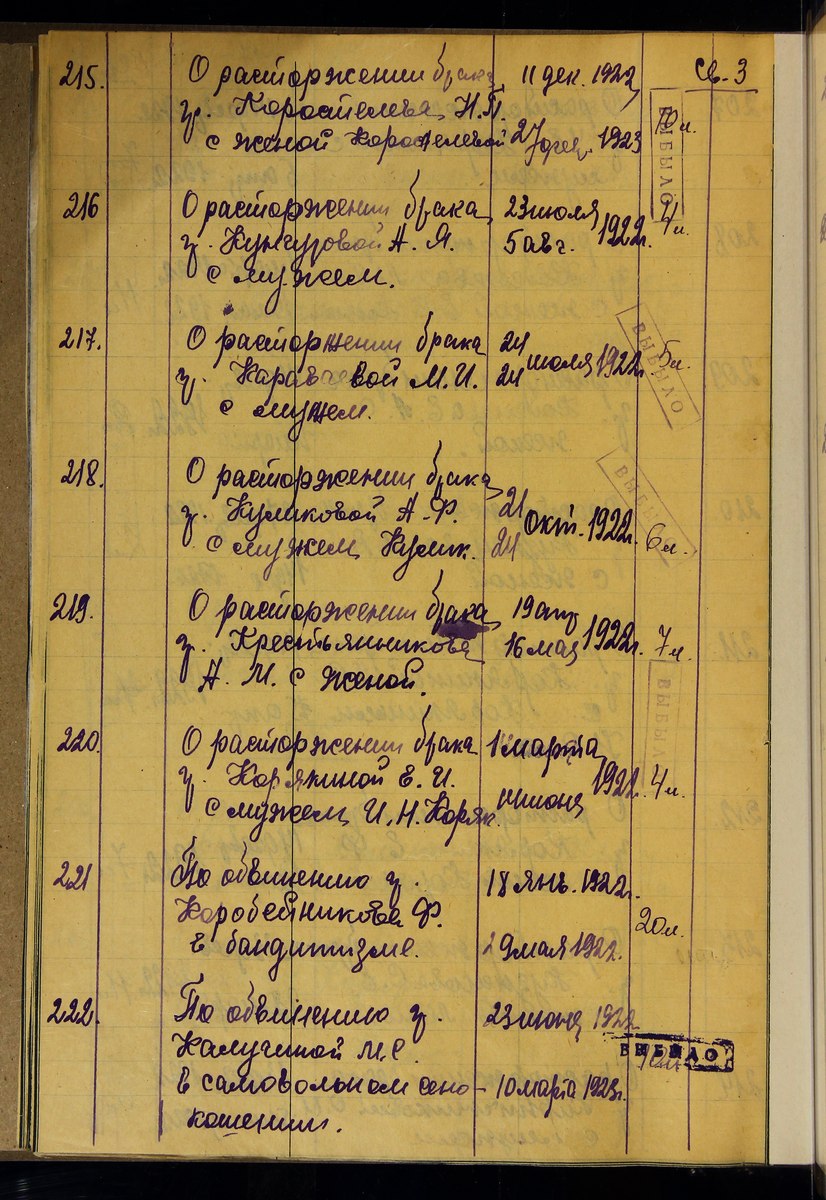 215. О расторжении брака 11 дек. 1922 Св. 3
гр. Коростелева Н.П. 10 л. ВЫБЫЛО
с женой Коростелевой 27 фев. 1923
216 О расторжении брака 23 июля 1922 г. 4 л.
гр. Кунгуровой А. Я. 5 авг.
с мужем.
217. О расторжении брака 24 июля 1922 г. 5 л. ВЫБЫЛО
гр. Караваевой М.И. 24
с мужем.
218. О расторжении брака 21 окт. 1922 г. ВЫБЫЛО
гр. Куликовой А.Ф. 6 л.
с мужем Кулик. 24
219. О расторжении брака 19 апр 1922 г. 7 л.
гр. Крестьянникова 16 мая
А. М. с женой. ВЫБЫЛО
220. О расторжении брака 1 марта 1922 г. 4 л.
гр. Корякиной Е. И.
с мужем И. Н. Коряк. июня
221 По обвинению гр. 18 янв. 1922 г.
Коробейникова Ф. 20 л.
в бандитизме. 29 мая 1922.
222. По обвинению гр. 23 июня 1922
Калугиной М.С. ВЫБЫЛО
в самовольном сено- 10 марта 1923 г.
кошении.